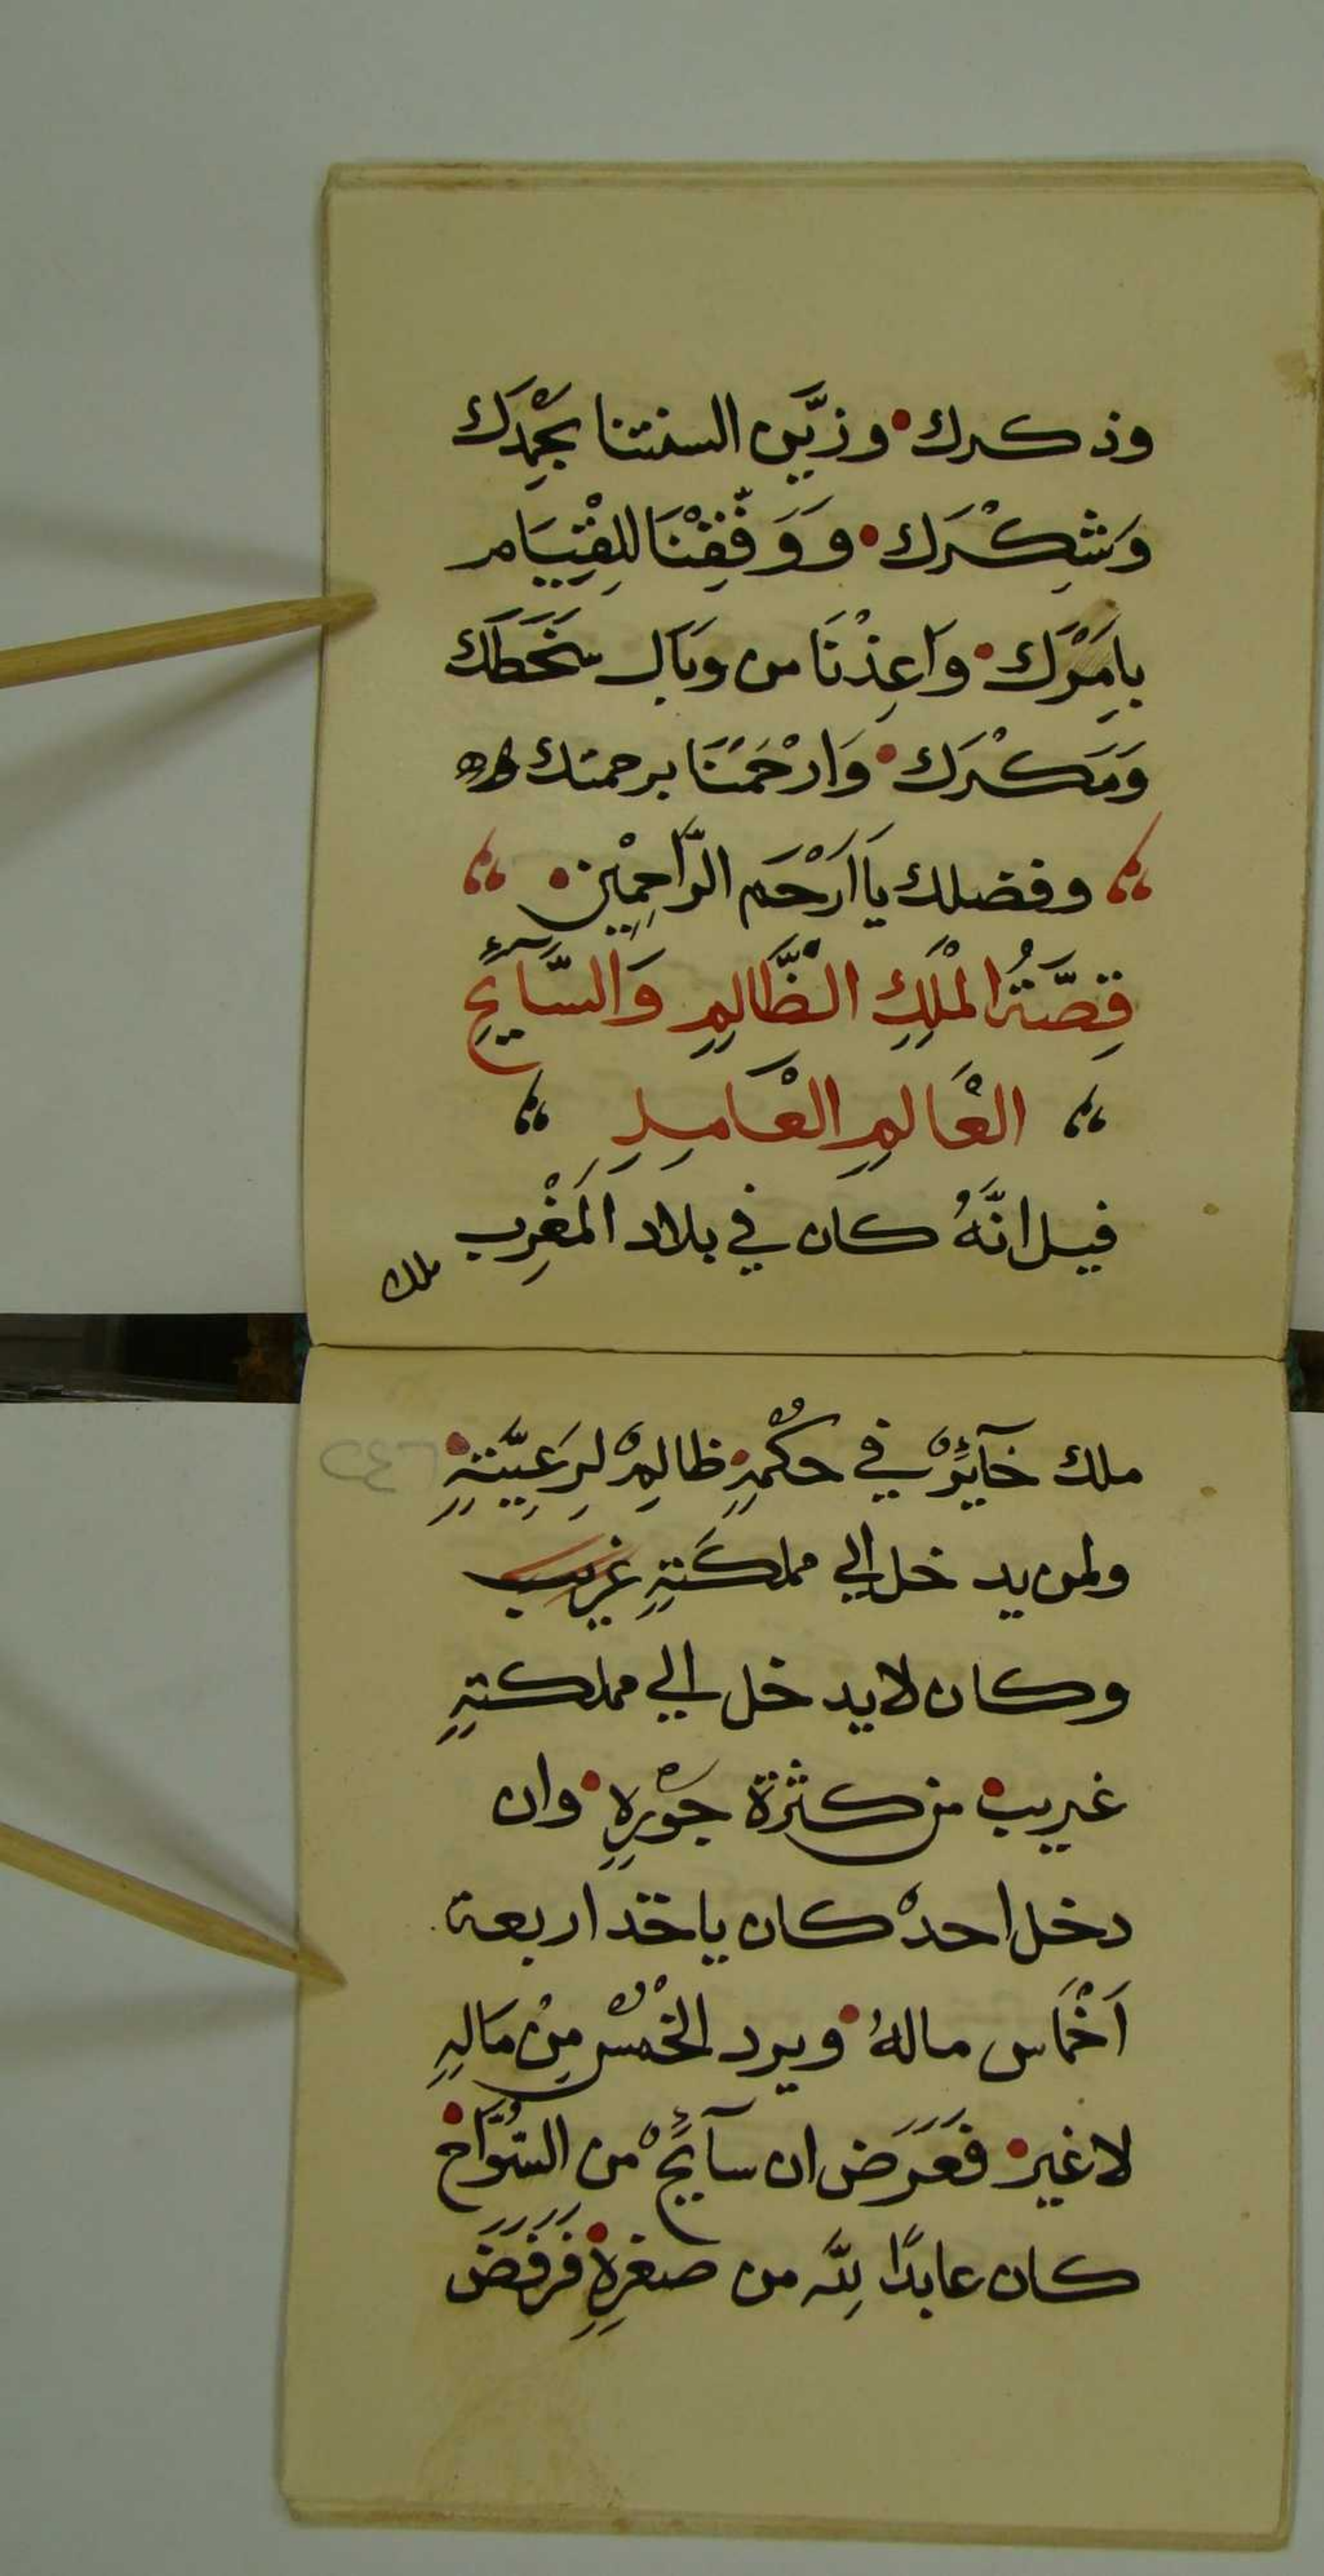 وذكرك • وزيَّن السنتنا بحَمْدِكَ
وَشِكْرَك • وَوَفِّقِنْنَا للِقْيِيَام
بامِرَك • واَعِذْنَا من وبَال سَخَطَكَ
وَمَكْرَك • وَارْحَمْنَا برحمتك
وفضلك يَا ارَْحَم الرَّاحِمِيْن •
قِصَّةُ الْمَلِكِ الظَّالِمِ وَالسَّآيِحِ
الْعَالِمِ الْعَامِلِ
قيل انَّهُ كان في بلاد المَغْرِب
ملك
ملك جَآيِرٌ في حكْمِهِ • ظالِمٌ لِرَعِيَّتِهِ •
ولمن يدخل الي مملكَتِهِ غريب
وكان لايدخل الي مملكتِهِ
غريب • من كثرة جَوْرِهِ • وان
دخل احدٌ كان ياخد اربعة
اَخْمَاس مالهُ • ويرد الخُمْس مِنْ مَالِهِ
لاغير • فَعَرَض ان سآيحٌ من السُّوَّاح •
كان عابدًا لِلّه من صغرِهِ • فَرَفَضَ